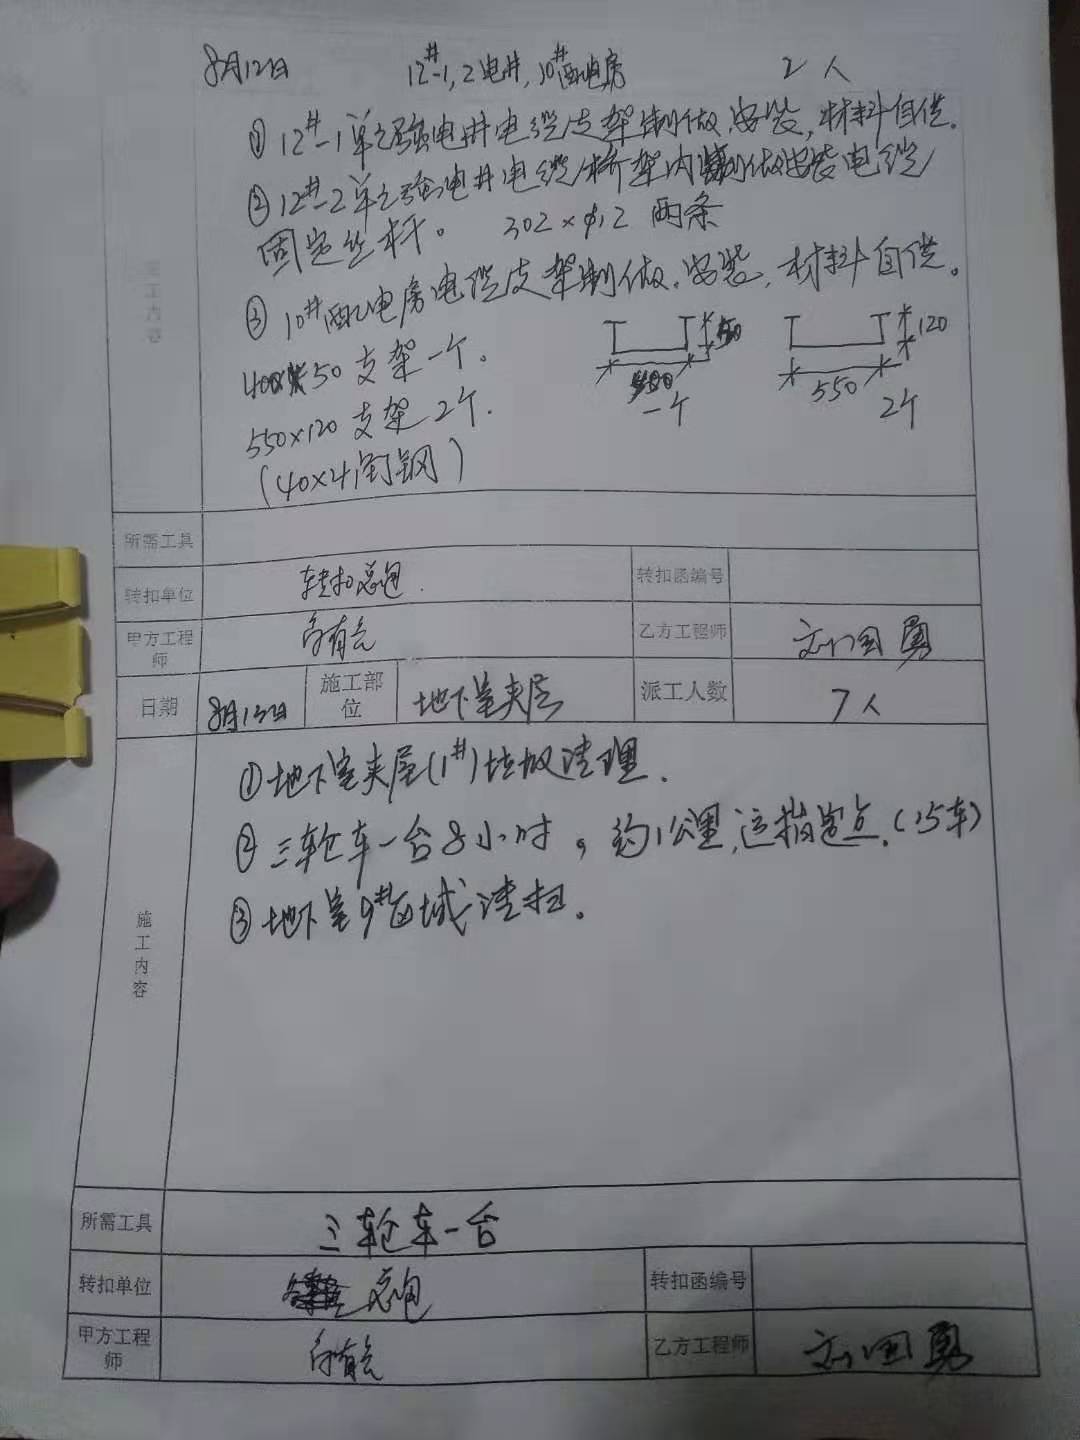 8月12日 12#-1,2电井,10#配电房 2人
①12#-1单元强电井电缆支架制做.安装,材料自供.
②12#-2单元强电井电缆桥架内制做安装电缆
固定丝杆。 302×φ12 两条
③10#配电房电缆支架制做.安装,材料自供。
施工内容
400×50支架一个.
50
一个
120
550
2个
550×120支架2个.
(40×4角钢)
所需工具
转扣单位 转扣总包. 转扣函编号
甲方工程师 乙方工程师 刘国勇
日期 8月13日 施工部位 地下室夹层 派工人数 7人
①地下室夹层(1#)垃圾清理.
②三轮车一台8小时,约1公里,运指定点.(15车)
③地下室9#区域清扫。
施工内容
所需工具 三轮车一台
转扣单位 总包 转扣函编号
甲方工程师 乙方工程师 刘国勇